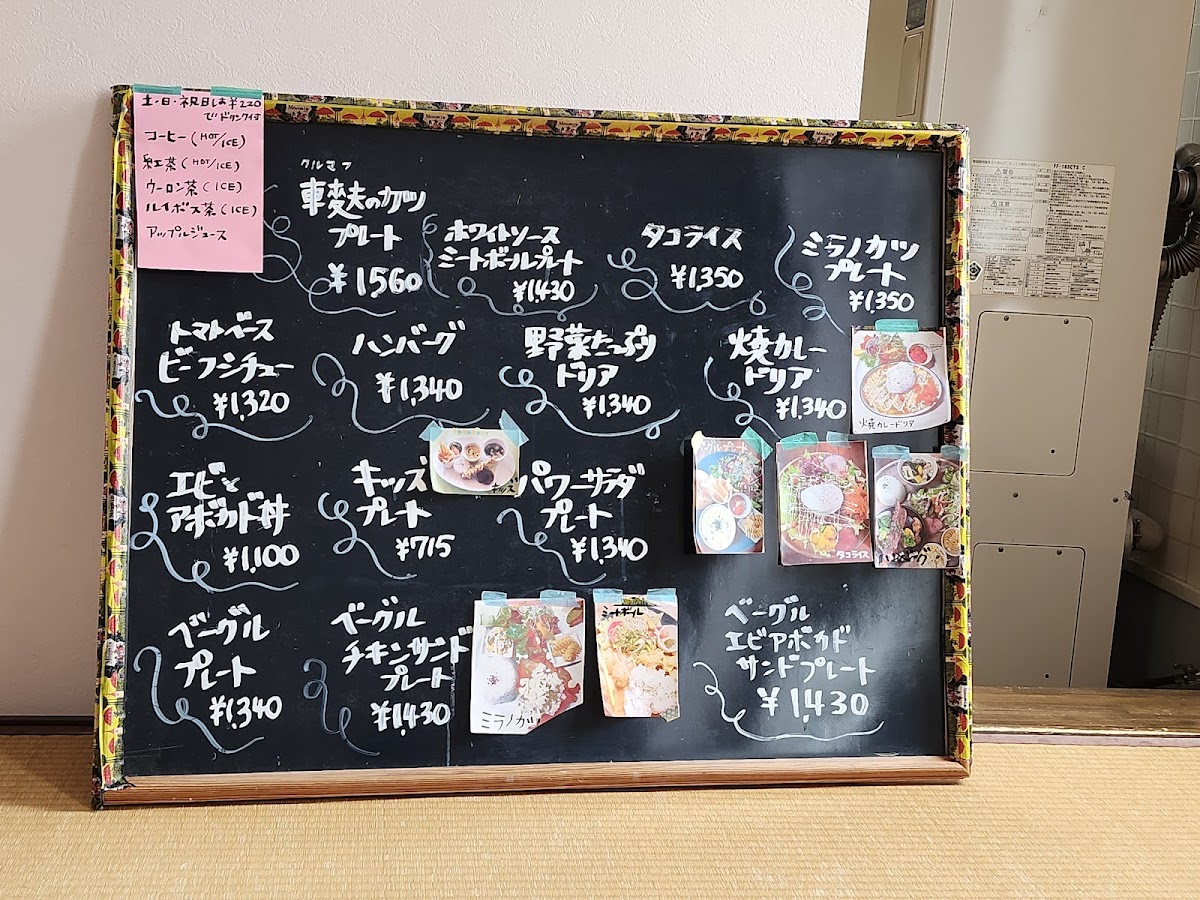 土・日・祝日は¥220
でドリンク付
コーヒー(HOT/ICE)
紅茶(HOT/ICE)
ウーロン茶(ICE)
ルイボス茶(ICE)
アップルジュース
クルマフ
車麦夫のカツ
プレート
¥1,560
ホワイトソース
ミートボールプレート
¥1430
タコライス
¥1,350
ミラノカツ
プレート
¥1,350
トマトベース
ビーフシチュー
¥1,320
ハンバーグ
¥1,340
野菜たっぷり
ドリア
¥1,340
焼カレー
ドリア
¥1,340
焼カレードリア
エビと
アボカド丼
¥1,100
キッズ
プレート
¥715
キッズ
パワーサラダ
プレート
¥1,340
タコライス
ベーグル
プレート
¥1,340
ベーグル
チキンサンド
プレート
¥1430
ミラノカツ
ミートボール
ベーグル
エビアボカド
サンドプレート
¥1,430
FF-185CTS C